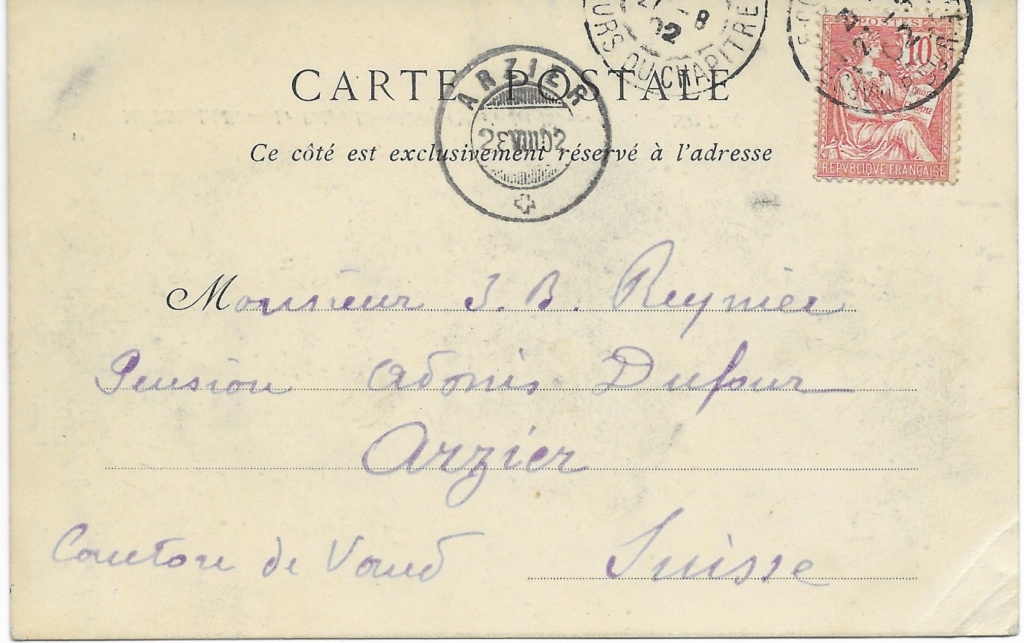 21 8
02
URS DU CHAPITRE
POSTES
10
REPVBLIQVE FRANÇAISE
CARTE POSTALE
ARZIER
23 VIII 02
Ce côté est exclusivement réservé à l'adresse
Monsieur J. B. Reynier
Pension Adonis Dufour
Arzier
Canton de Vaud Suisse